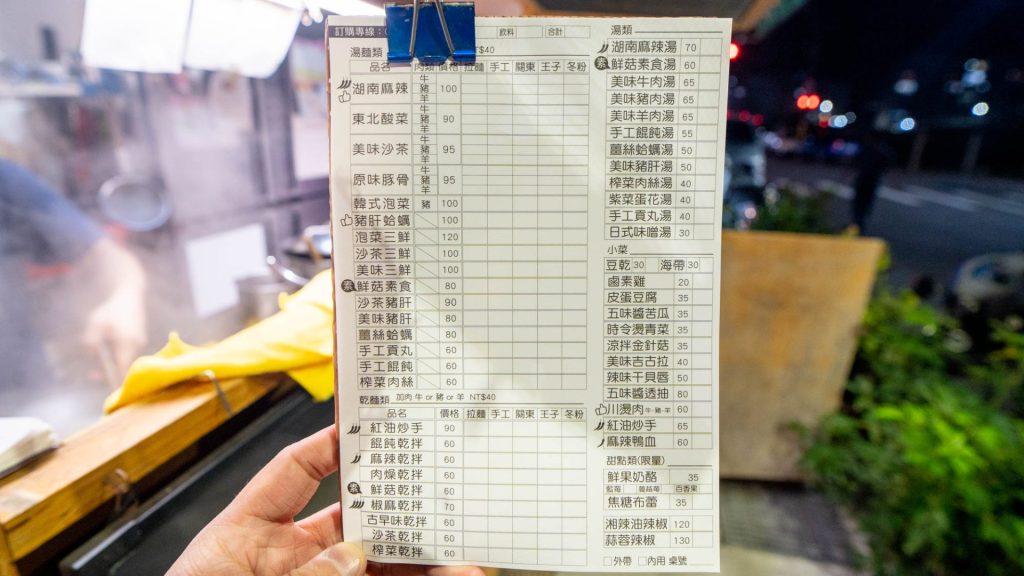 訂購專線：
飲料 合計
湯麵類 T$40
品名 肉類 價格 拉麵 手工 關東 王子 冬粉
湖南麻辣 牛 豬 羊 100
東北酸菜 牛 豬 羊 90
美味沙茶 牛 豬 羊 95
原味豚骨 牛 豬 羊 95
韓式泡菜 豬 100
豬肝蛤蠣 100
泡菜三鮮 120
沙茶三鮮 100
美味三鮮 100
素 鮮菇素食 80
沙茶豬肝 90
美味豬肝 80
薑絲蛤蠣 80
手工貢丸 60
手工餛飩 60
榨菜肉絲 60
乾麵類 加肉 牛 or 豬 or 羊 NT$40
品名 價格 拉麵 手工 關東 王子 冬粉
紅油炒手 90
餛飩乾拌 60
麻辣乾拌 60
肉燥乾拌 60
素 鮮菇乾拌 60
椒麻乾拌 70
古早味乾拌 60
沙茶乾拌 60
榨菜乾拌 60
湯類
湖南麻辣湯 70
素 鮮菇素食湯 60
美味牛肉湯 65
美味豬肉湯 65
美味羊肉湯 65
手工餛飩湯 55
薑絲蛤蠣湯 50
美味豬肝湯 50
榨菜肉絲湯 40
紫菜蛋花湯 40
手工貢丸湯 40
日式味噌湯 30
小菜
豆乾 30 海帶 30
鹵素雞 20
皮蛋豆腐 35
五味醬苦瓜 35
時令燙青菜 35
涼拌金針菇 35
美味吉古拉 40
辣味干貝唇 50
五味醬透抽 80
川燙肉 牛·豬·羊 60
紅油炒手 65
麻辣鴨血 60
甜點類(限量)
鮮果奶酪 35
藍莓 蔓越莓 百香果
焦糖布蕾 35
湘辣油辣椒 120
蒜蓉辣椒 130
□外帶 □內用 桌號